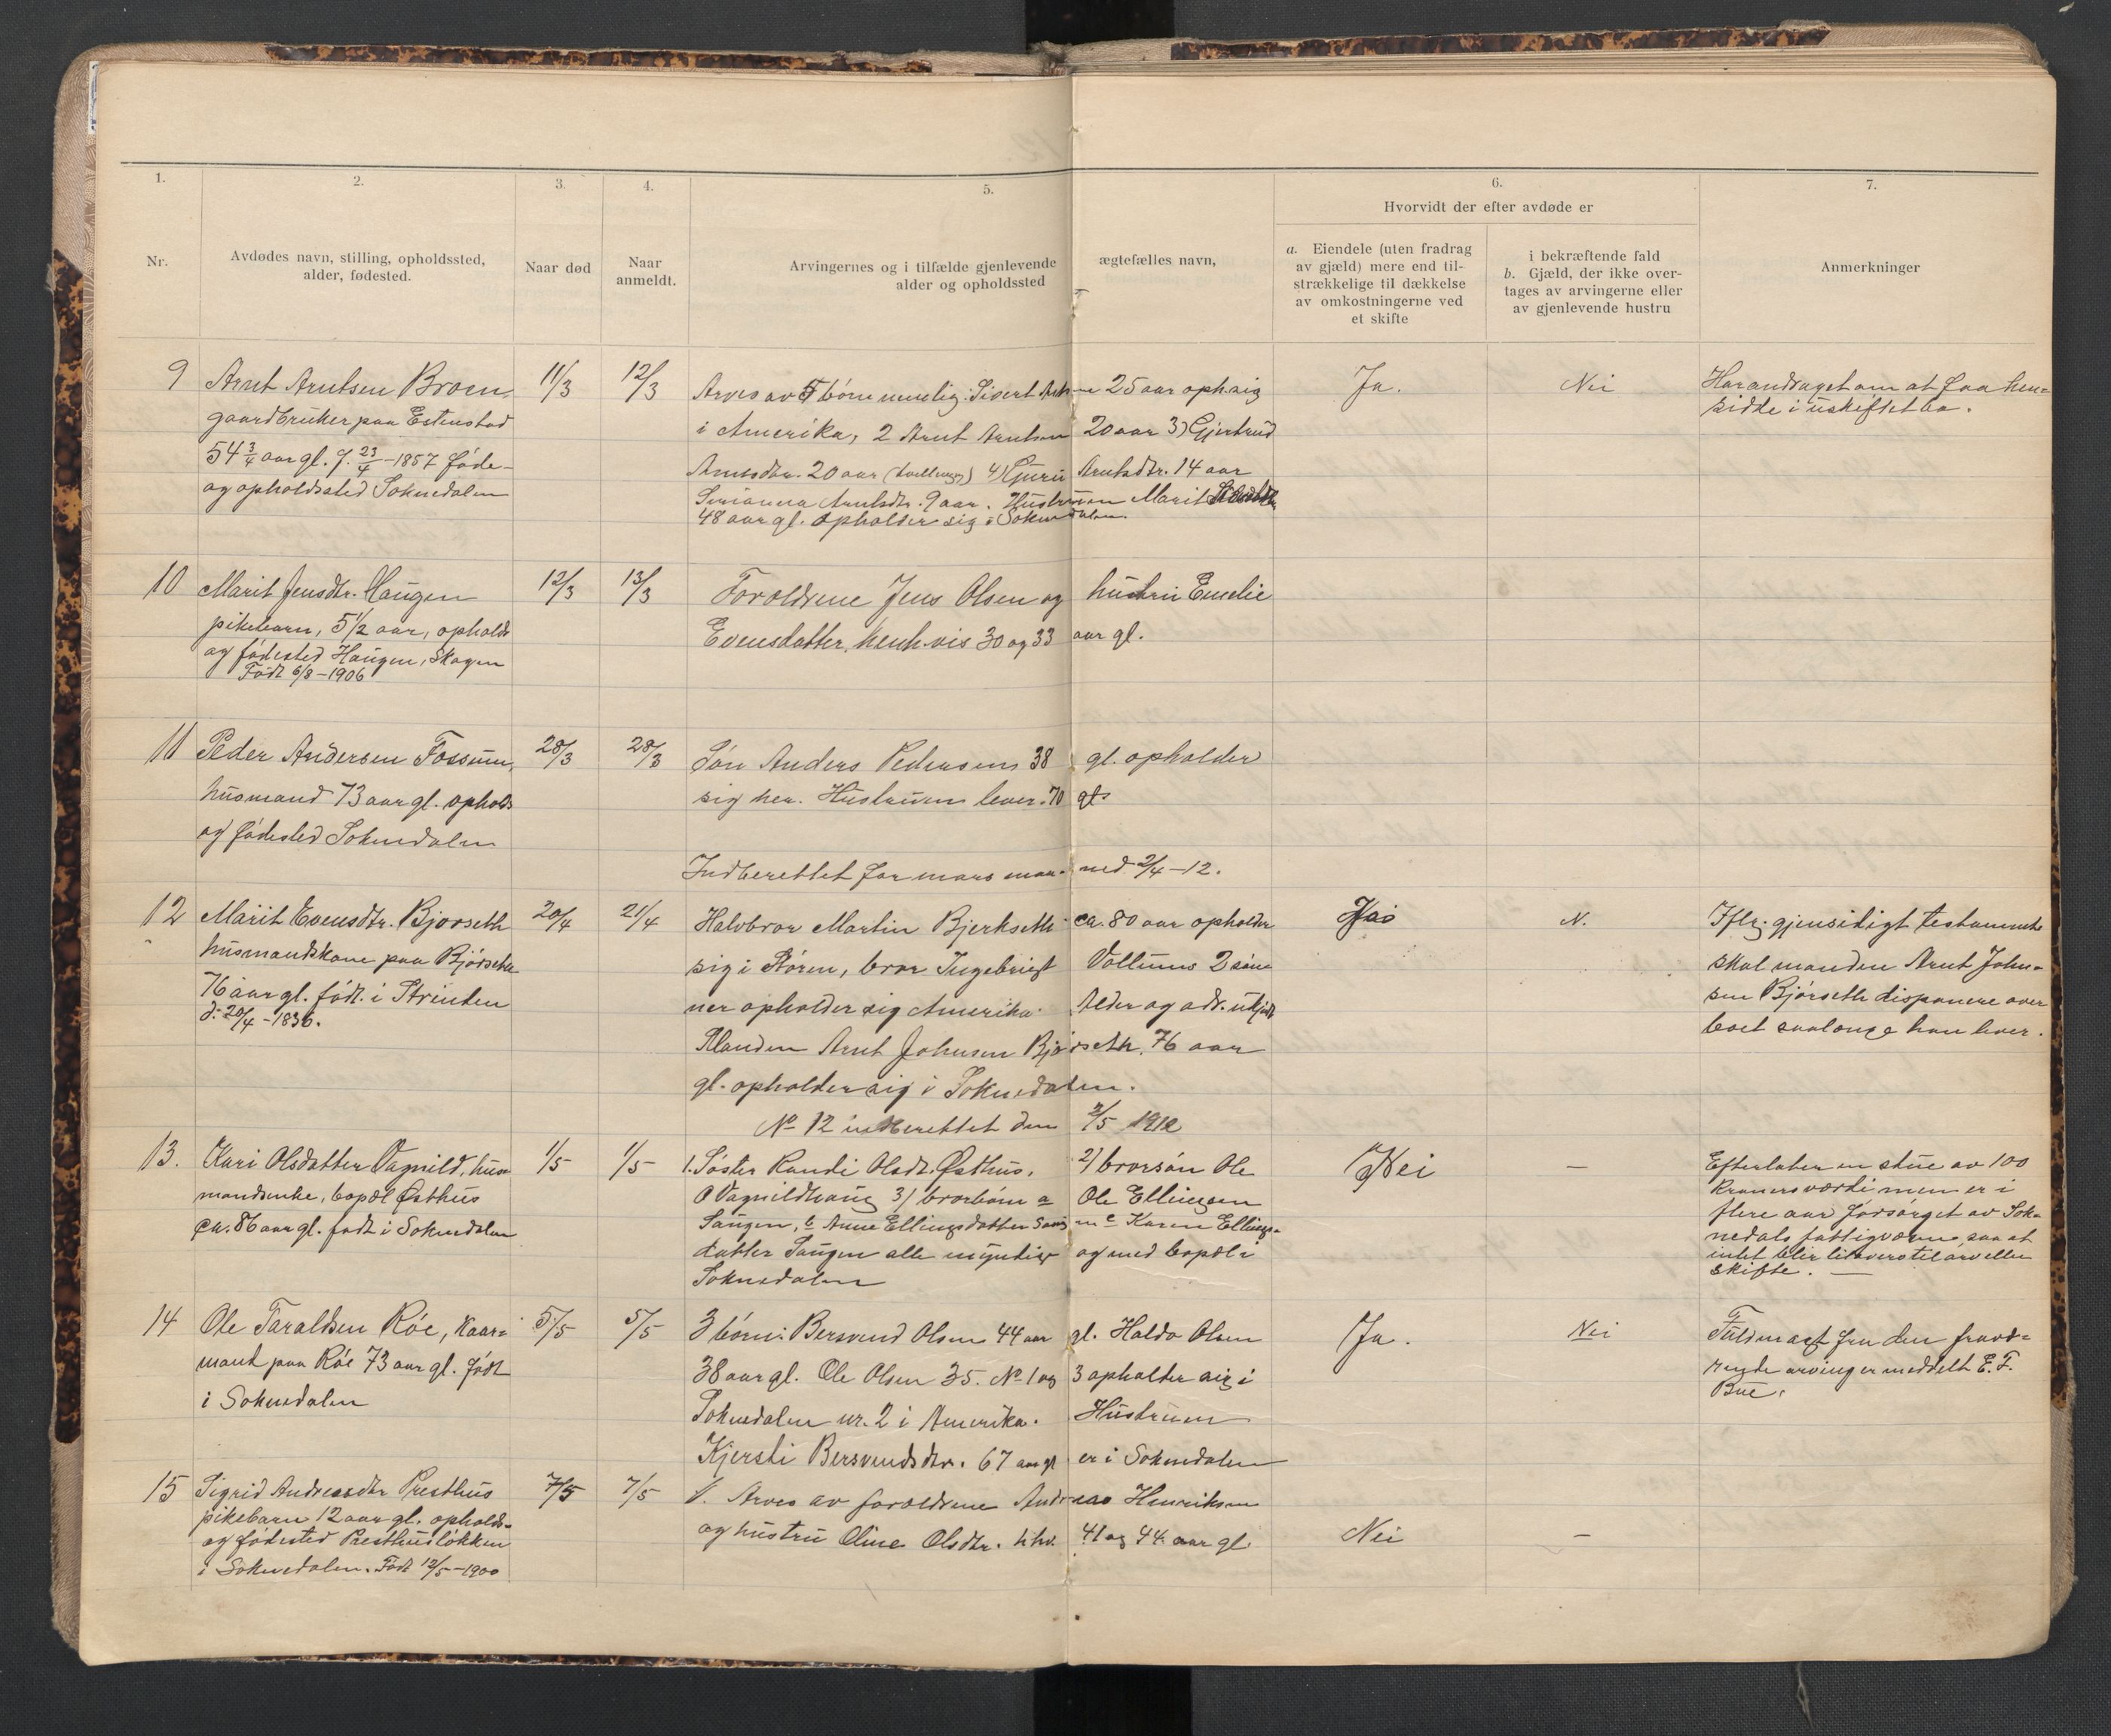 1.
2.
3.
4.
5.
6.
7.
Hvorvidt der efter avdøde er
Nr.
Avdødes navn, stilling, opholdssted,
alder, fødested.
Naar død
Naar
anmeldt.
Arvingernes og i tilfælde gjenlevende ægtefælles navn,
alder og opholdssted
a. Eiendele (uten fradrag
av gjæld) mere end til-
strækkelige til dækkelse
av omkostningerne ved
et skifte
i bekræftende fald
b. Gjæld, der ikke over-
tages av arvingerne eller
av gjenlevende hustru
Anmerkninger
9
Arnt Arntsen Broen,
gaardbruker paa Estenstad
54 3/4 aar gl. f. 23/4 - 1857 føde-
og opholdssted Soknedalen
11/3
12/3
Arves av 5 børn nemlig: Sivert Arnt 25 aar oph. sig
i Amerika, 2 Arnt Arntsen 20 aar 3) Gjertrud
Arntsdtr. 20 aar (tvillinger) 4) Guru Arntsdtr. 14 aar
Arntsdtr. 9 aar. Hustruen Marit
48 aar gl. opholder sig i Soknedalen.
Ja.
Nei
Har andraget om at faa hen-
sidde i uskiftet bo.
10
Marit Jensdtr. Haugen
pikebarn, 5 1/2 aar, opholds
og fødested Haugen, Skogen
Født 6/8 - 1906
12/3
13/3
Foroldrene Jens Olsen og hustru Emelie
Evensdatter, henh.vis 30 og 33 aar gl.
11
Peder Andersen Fossum,
husmand 73 aar gl. opholds
og fødested Soknedalen
28/3
28/3
Søn Anders Pedersen 38 gl. opholder
sig her. Hustruen lever. 70 gl.
Indberettet for mars maaned 2/4 - 12.
12
Marit Evensdtr. Bjørseth
husmandskone paa Bjørseth
76 aar gl. født i Strinden
d. 20/4 - 1836.
20/4
21/4
Halvbror Martin Bjerkseth ca. 80 aar opholder
sig i Støren, bror Ingebrigt Vollums 2 søn-
ner opholder sig Amerika. Alder og adr. ukjendt
Manden Arnt Johnsen Bjørseth, 76 aar
gl. opholder sig i Soknedalen.
No 12 indberettet den 2/5 1912
Ja
N.
Iflg. gjensidigt testamente
skal manden Arnt John-
sen Bjørseth disponere over
boet saalænge han lever.
13.
Kari Olsdatter Vagnild, hus-
mandsenke, bopæl Østhus
ca. 86 aar gl. født i Soknedalen
1/5
1/5
1. Søster Randi Olsdt. Østhus, 2) brorsøn Ole
O Vagnildhaug 3) brorbørn a Ole Ellingsen
Saugen, b Anne Ellingsdatter c Karen Ellings-
datter Saugen alle myndige og med bopæl i
Soknedalen
Nei
—
Efterlater en stue av 100
kroners værdi men er i
flere aar forsørget av Sok-
nedals fattigvæsen, saa at
intet blir tilovers til arv eller
skifte. —
14
Ole Taraldsen Røe, Kaar-
mand paa Røe 73 aar gl. født
i Soknedalen
5/5
5/5
3 børn: Bersvend Olsen 44 aar gl. Haldo Olsen
38 aar gl. Ole Olsen 35. No 1 og 3 opholder sig i
Soknedalen nr. 2 i Amerika. Hustruen
Kjersti Bersvendsdtr. 67 aar gl er i Soknedalen
Ja.
Nei
Fuldmagt fra den fravæ-
rende arving er meddelt E. F.
Bue.
15
Sigrid Andreasdtr Presthus
pikebarn 12 aar gl. opholds-
og fødested Presthusløkken
i Soknedalen. Født 12/5 - 1900
7/5
7/5
Arves av foroldrene Andreas Henriksen
og hustru Oline Olsdtr. hhv. 41 og 44 aar gl.
Nei
—